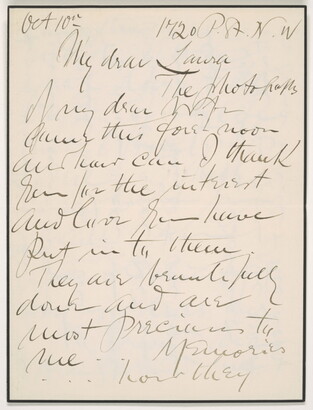 Oct 10th 1720 P. St. N. W
My dear Laura
The photographs
of my dear
came this fore noon
and how can I thank
you for the interest
and love you have
put in to them.
They are beautifully
done and are
most precious to
me... Memories
.... how they